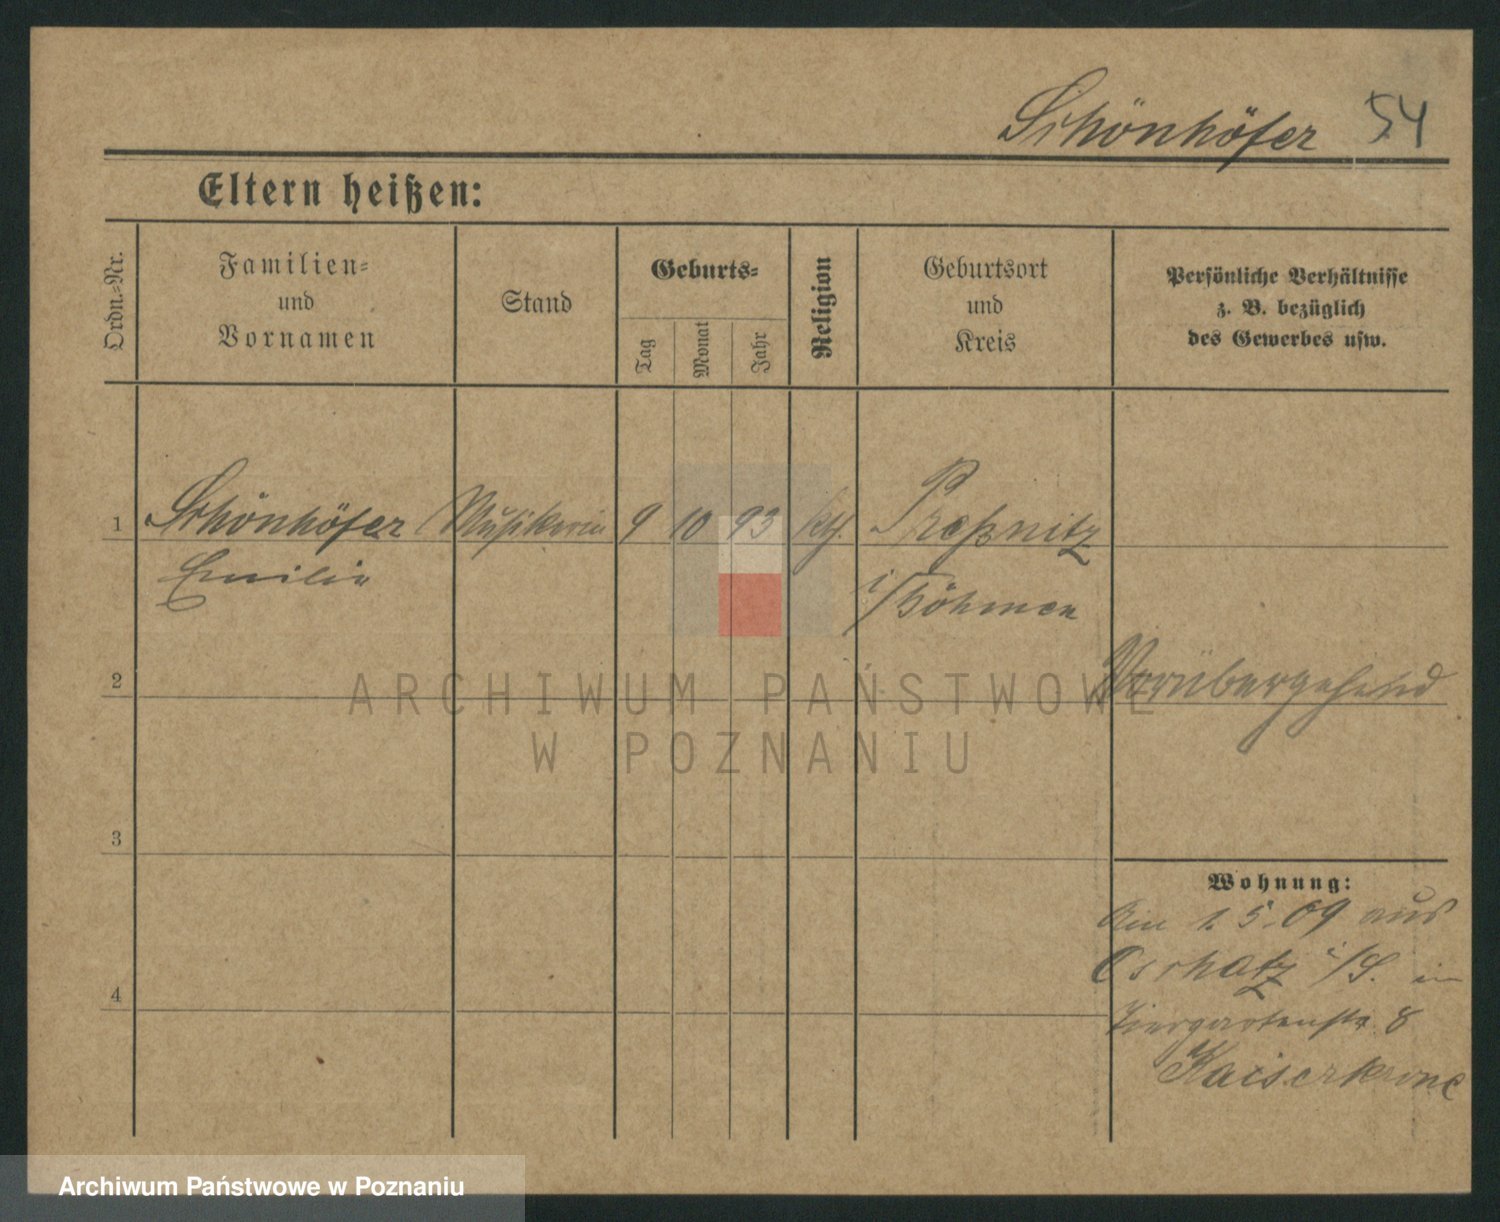 Schönhöfer 54
Eltern heißen:
Ordn.-Nr.
Familien-
und
Vornamen
Stand
Geburts-
Tag
Monat
Jahr
Religion
Geburtsort
und
Kreis
Persönliche Verhältnisse
z. B. bezüglich
des Gewerbes usw.
1 Schönhöfer Musikerin 9 10 93 kth. Preßnitz
Emilie
i/Böhmen
2 Vorübergehend
3
Wohnung:
Am 1.5.09 aus
Oschatz i/S. in
4
Tiergartenstr. 8
Kaiserkrone
ARCHIWUM PAŃSTWOWE
W POZNANIU
Archiwum Państwowe w Poznaniu